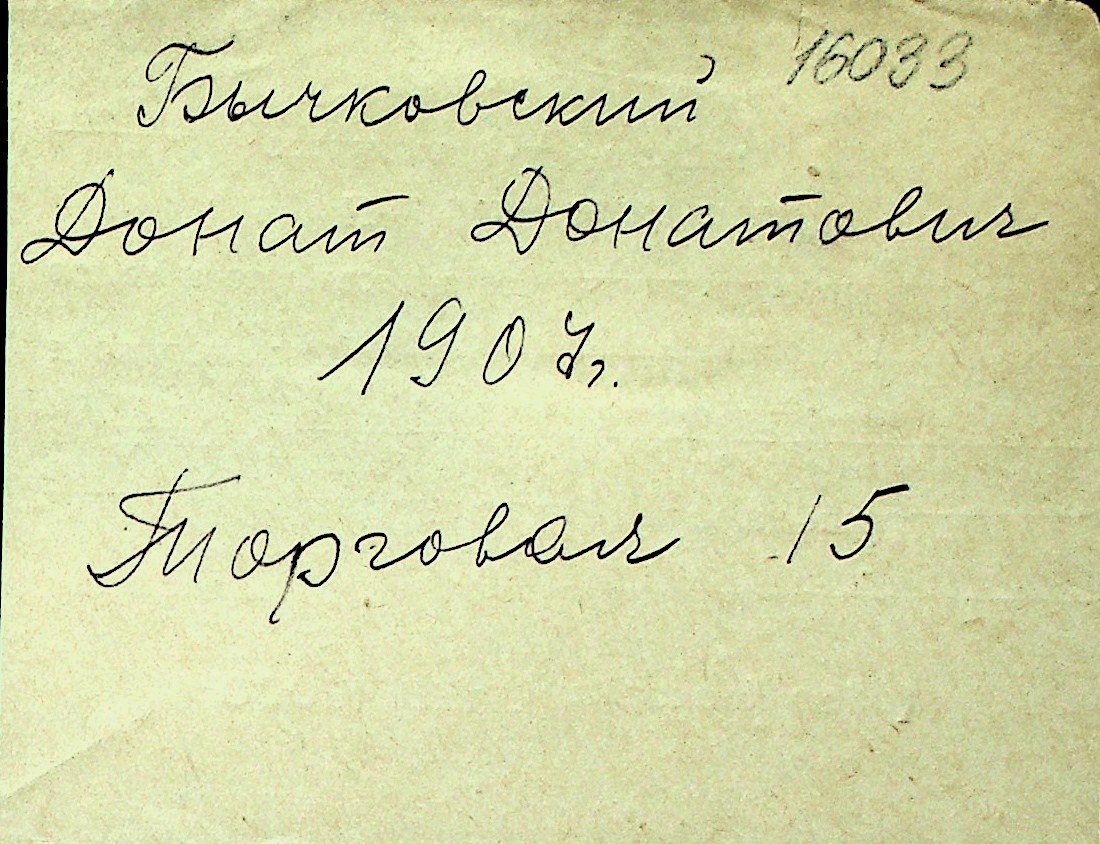 16033
Бычковский
Донат Донатович
1907г.
Торговая 15